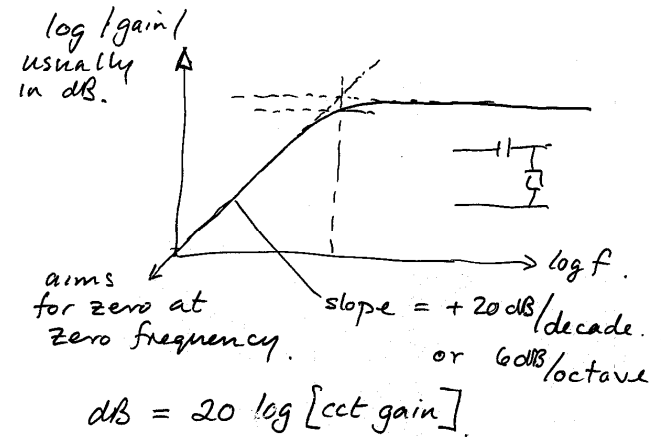 log |gain|
usually
in dB.
log f.
aims
for zero at
zero frequency.
slope = + 20 dB/decade.
or 6dB/octave
dB = 20 log [cct gain].